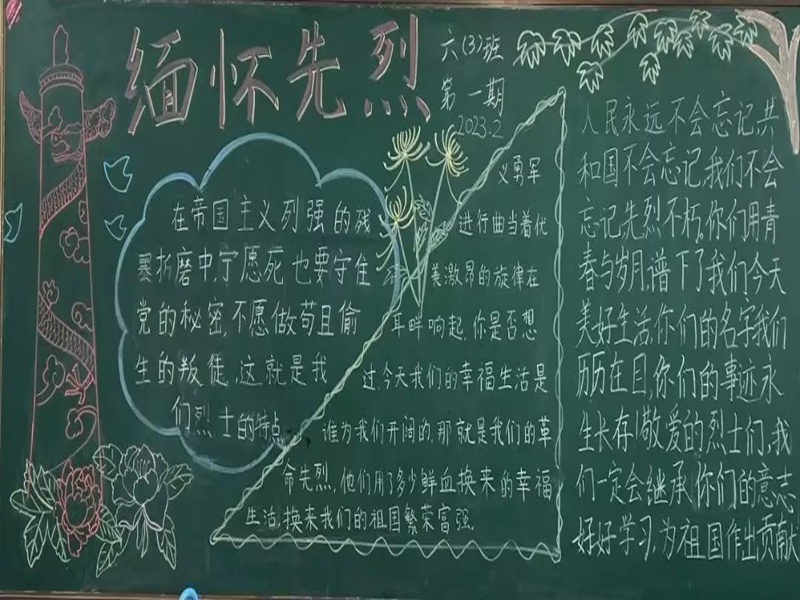 缅怀先烈
六(3)班
第一期
2023.2
在帝国主义列强的残
暴折磨中,宁愿死也要守住
党的秘密,不愿做苟且偷
生的叛徒,这就是我
们烈士的特点。
义勇军
进行曲当着优
美激昂的旋律在
耳畔响起,你是否想
过,今天我们的幸福生活是
谁为我们开阔的,那就是我们的革
命先烈,他们用了多少鲜血换来的幸福
生活,换来我们的祖国繁荣富强。
人民永远不会忘记,共
和国不会忘记,我们不会
忘记,先烈不朽,你们用青
春与岁月,谱下了我们今天
美好生活,你们的名字我们
历历在目,你们的事迹永
生长存!敬爱的烈士们,我
们一定会继承你们的意志
好好学习,为祖国作出贡献